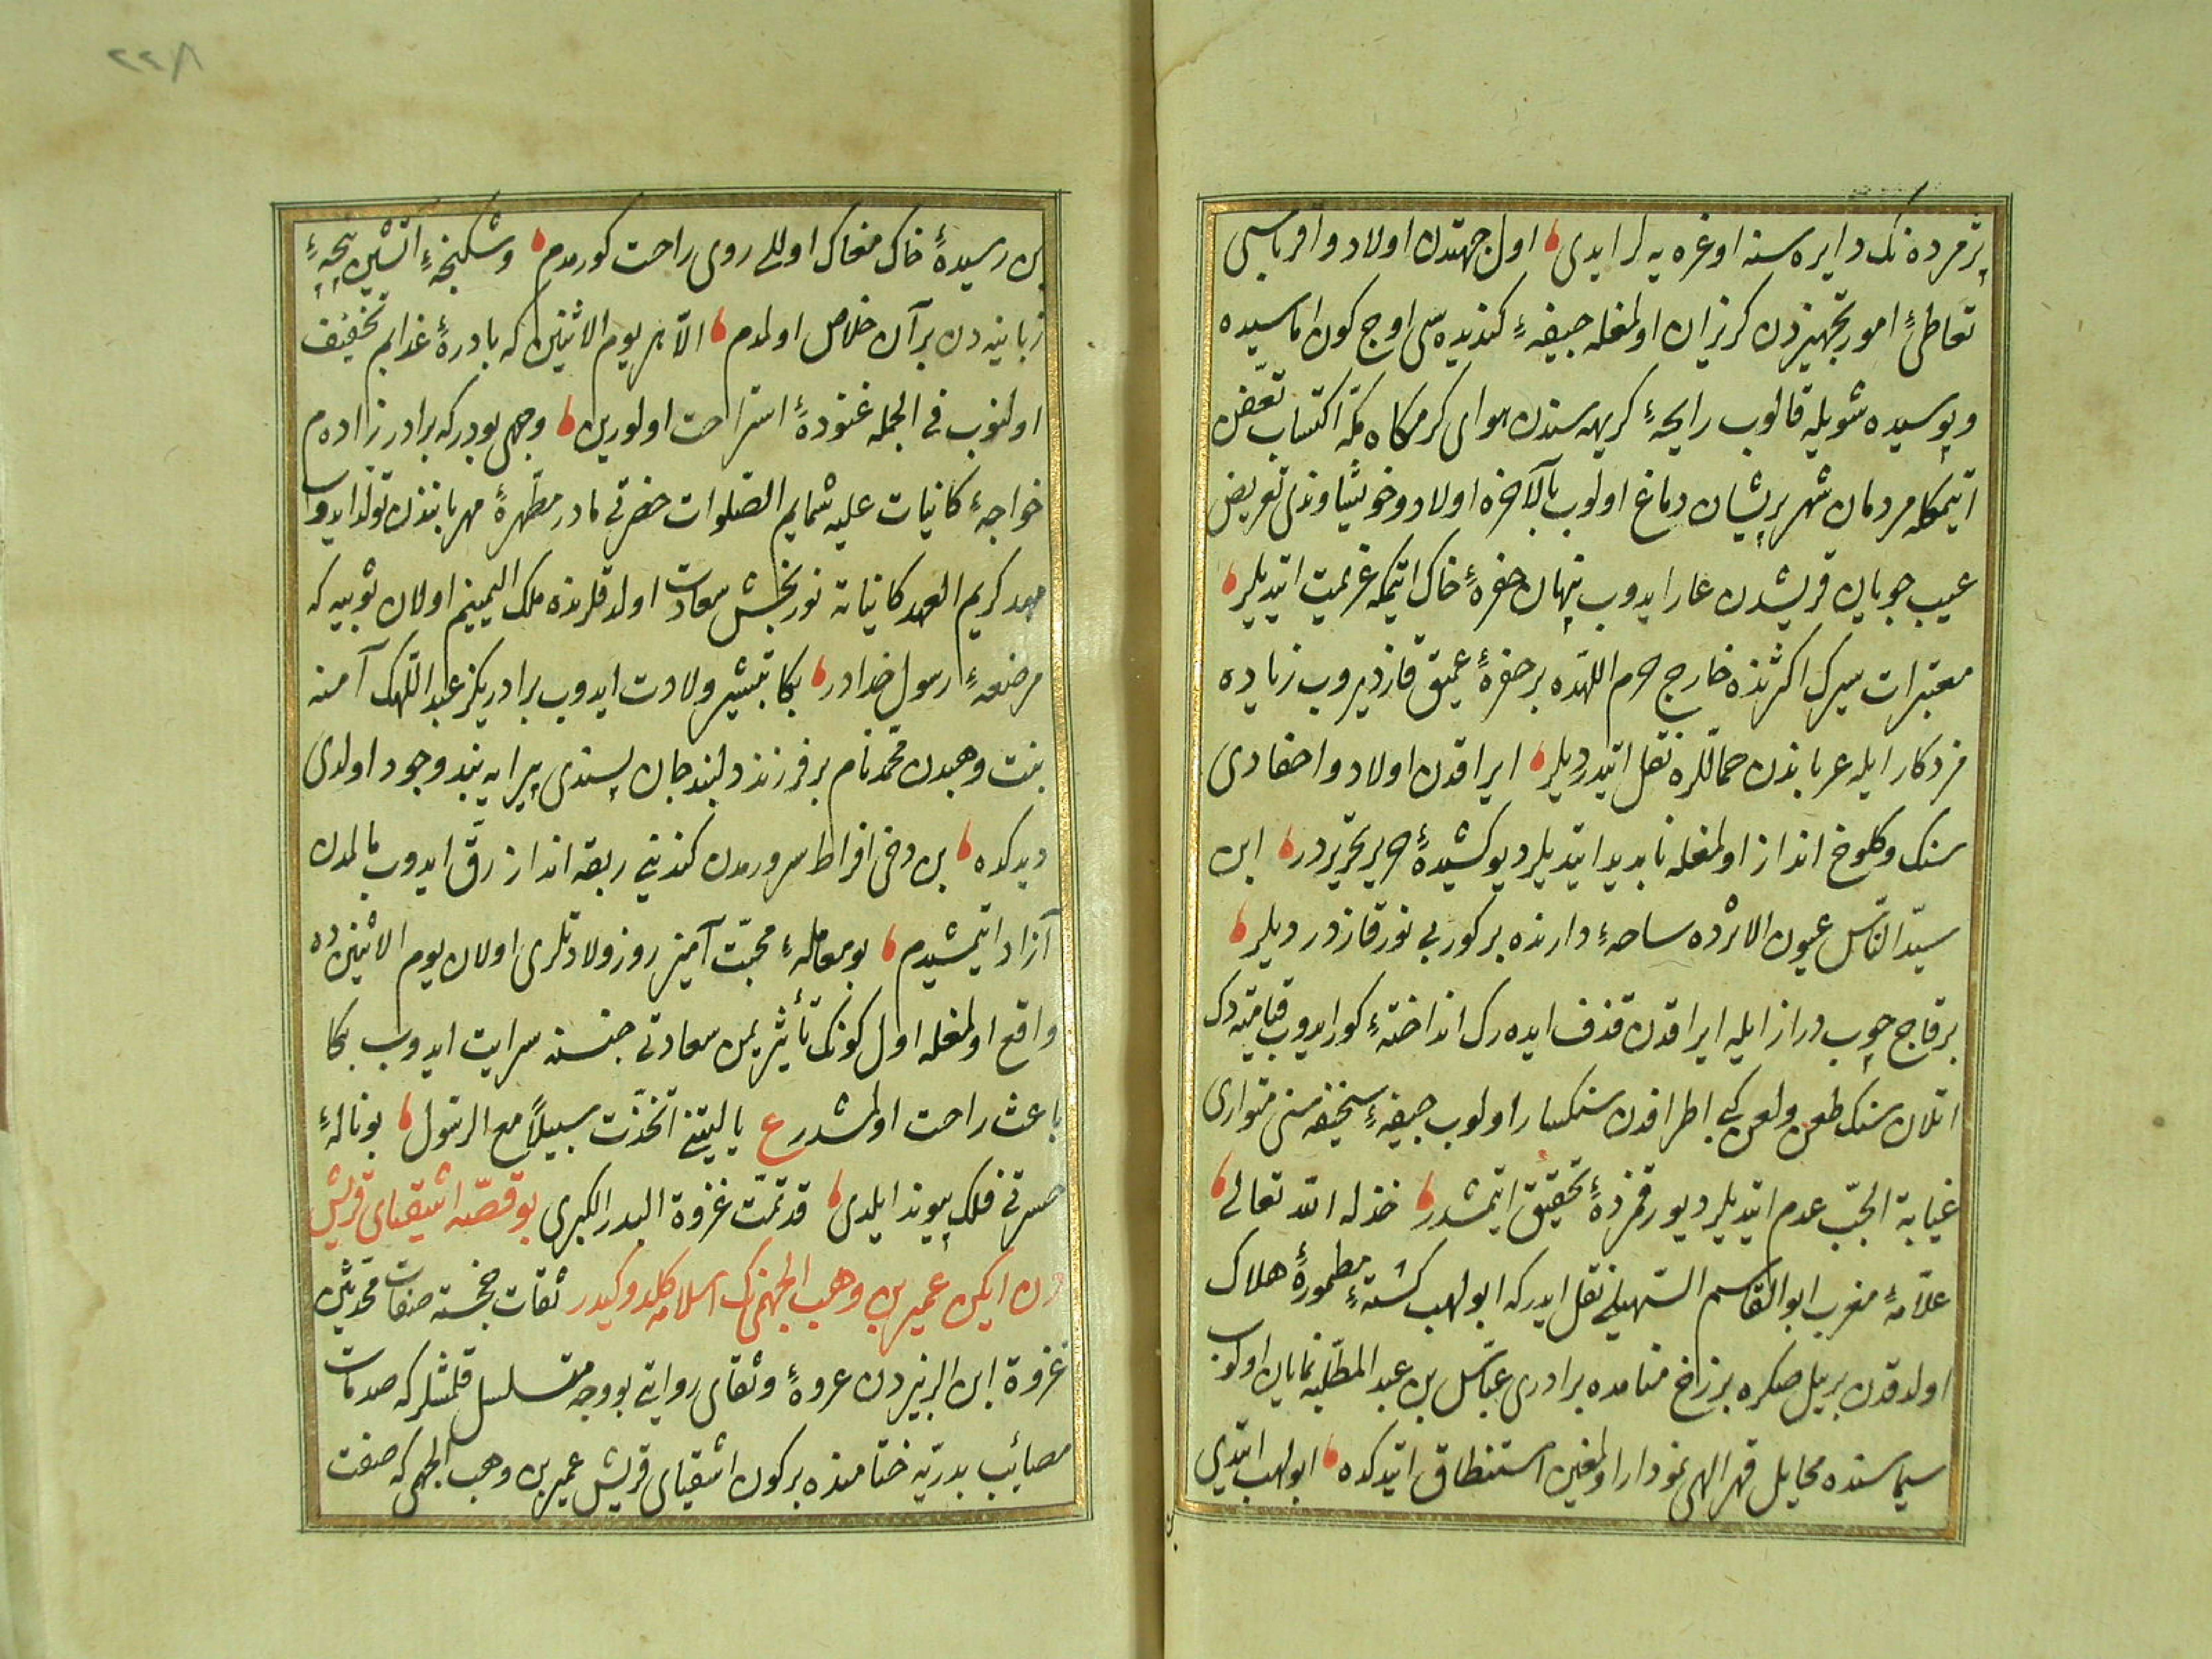 پژمرده نك دایره سنه اوغره یه لر ایدی، اول جهتدن اولاد و اقرباسی
تعاطئ امور تجهیزدن کریزان اولمغله جیفهٔ کندیده سی اوچ کون اماسیده
و پوسیده شویله قالوب رایحهٔ کریهه سندن هوای کرمکاه مکه اکتساب تعفن
اتیمکله مردمان شهر پریشان دماغ اولوب بالآخره اولاد و خویشاوندی تعریض
عیب جویان قریشدن عار ایدوب پنهان حفرهٔ خاك اتیمکه عزیمت اتیدیلر،
معتبرات سیرك اکثرنده خارج حرم اللهده بر حفرهٔ عمیق قازدیروب زیاده
مزدکار ایله عرباندن حماللره نقل اتیدردیلر، ایراقدن اولاد و احفادی
سنك و کلوخ انداز اولمغله نابدید اتیدیلر دیو کشیدهٔ حریر تحریردر، ابن
سیّد النّاس عیون الاثرده ساحهٔ دارنده بر کور بی نور قازدردیلر،
بر قاچ چوب دراز ایله ایراقدن قذف ایده رك انداختهٔ کور ایدوب قیامته دك
اتلان سنك طعن و لعن کبی اطرافدن سنکسار اولوب جیفهٔ سخیفه سنی متواری
غیابة الجبّ عدم اتیدیلر دیو رقمزدهٔ تحقیق اتیمشدر، خذله الله تعالی،
علّامهٔ مغرب ابو القاسم السّهیلی نقل ایدر که ابو لهب کشتهٔ مطمورهٔ هلاك
اولدقدن بر ییل صکره برزخ منامده برادری عبّاس بن عبد المطّلبه نمایان اولوب
سیماسنده مخایل قهر الهی نمودار اولمغین استنطاق اتیدکده، ابو لهب ایتدی
بن رسیدهٔ خاك مغاك اولالی روی راحت کورمدم، و شکنجهٔ آتشین پنجهٔ
زبانیه دن بر آن خلاص اولمدم، الّا هر یوم الاثنین که بادرهٔ عذابم تخفیف
اولنوب فی الجمله غنودهٔ استراحت اولورین، وجهی بودر که برادر زاده م
خواجهٔ کاینات علیه شمایم الصّلوات حضرتی مادر مطهّرهٔ مهربانندن تولّد ایدوب
مهد کریم العهد کایناته نور بخش سعادت اولدقلرنده ملك الیمینم اولان ثویبه که
مرضعهٔ رسول خدادر، بکا تبشیر ولادت ایدوب برادریکز عبد اللّهك آمنه
بنت وهبدن محمّد نام بر فرزند دلبند جان پسندی پیرایه بند وجود اولدی
دیدکده، بن دخی افراط سرورمدن کندینی ربقه انداز رقّ ایدوب مالمدن
آزاد اتیمشیدم، بو معاملهٔ محبّت آمیز روز ولادتلری اولان یوم الاثنین ده
واقع اولمغله اول کونك تأثیر یمن سعادتی جنسنه سرایت ایدوب بکا
باعث راحت اولمشدر ع یا لیتنی اتّخذت سبیلاً مع الرّسول، بو نالهٔ
حسرتی فلك پیوند ایلدی، قد تمّت غزوة البدر الکبری بو قصّه اشقیای قریش
دن ایکن عمیر بن وهب الجهنی نك اسلامه کلدوکیدر ثقات خجسته صفات محدّثین
عروة ابن الزبیردن عروهٔ وثقای روایتی بو وجه متسلسل قلمشلر که صدمات
مصائب بدریّه ختامنده بر کون اشقیای قریش عمیر بن وهب الجهنی که صفت
۲۲۸